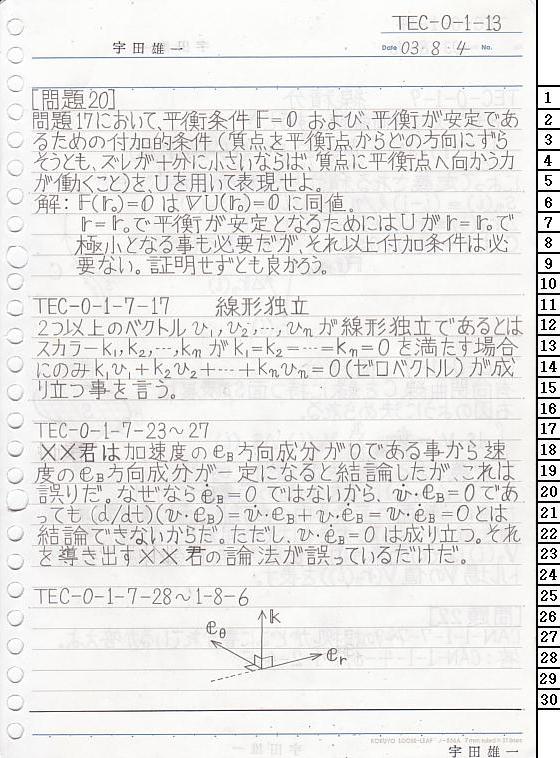 TEC-0-1-13
宇田雄一
Date 03・8・4 No.
[問題20]
問題17において、平衡条件 F=0 および、平衡が安定であ
るための付加的条件(質点を平衡点からどの方向にずら
そうとも、ズレが十分に小さいならば、質点に平衡点へ向かう力
が働くこと)を、Uを用いて表現せよ。
解: F(r₀)=0 は ∇U(r₀)=0 に同値。
r=r₀で平衡が安定となるためにはUがr=r₀で
極小となる事も必要だが、それ以上付加条件は必
要ない。証明せずとも良かろう。
TEC-0-1-7-17 線形独立
2つ以上のベクトル v₁,v₂,…,vₙ が線形独立であるとは
スカラーk₁,k₂,…,kₙ が k₁=k₂=…=kₙ=0 を満たす場合
にのみk₁v₁+k₂v₂+…+kₙvₙ=0(ゼロベクトル)が成
り立つ事を言う。
TEC-0-1-7-23~27
××君は加速度のe_B方向成分が0である事から速
度のe_B方向成分が一定になると結論したが、これは
誤りだ。なぜならė_B=0 ではないから、v̇・e_B=0であ
っても(d/dt)(v・e_B)=v̇・e_B+v・ė_B=v・ė_B=0とは
結論できないからだ。ただし、v・ė_B=0 は成り立つ。それ
を導き出す××君の論法が誤っているだけだ。
TEC-0-1-7-28~1-8-6
k
e_θ
e_r
KOKUYO LOOSE-LEAF
宇田雄一
1
2
3
4
5
6
7
8
9
10
11
12
13
14
15
16
17
18
19
20
21
22
23
24
25
26
27
28
29
30